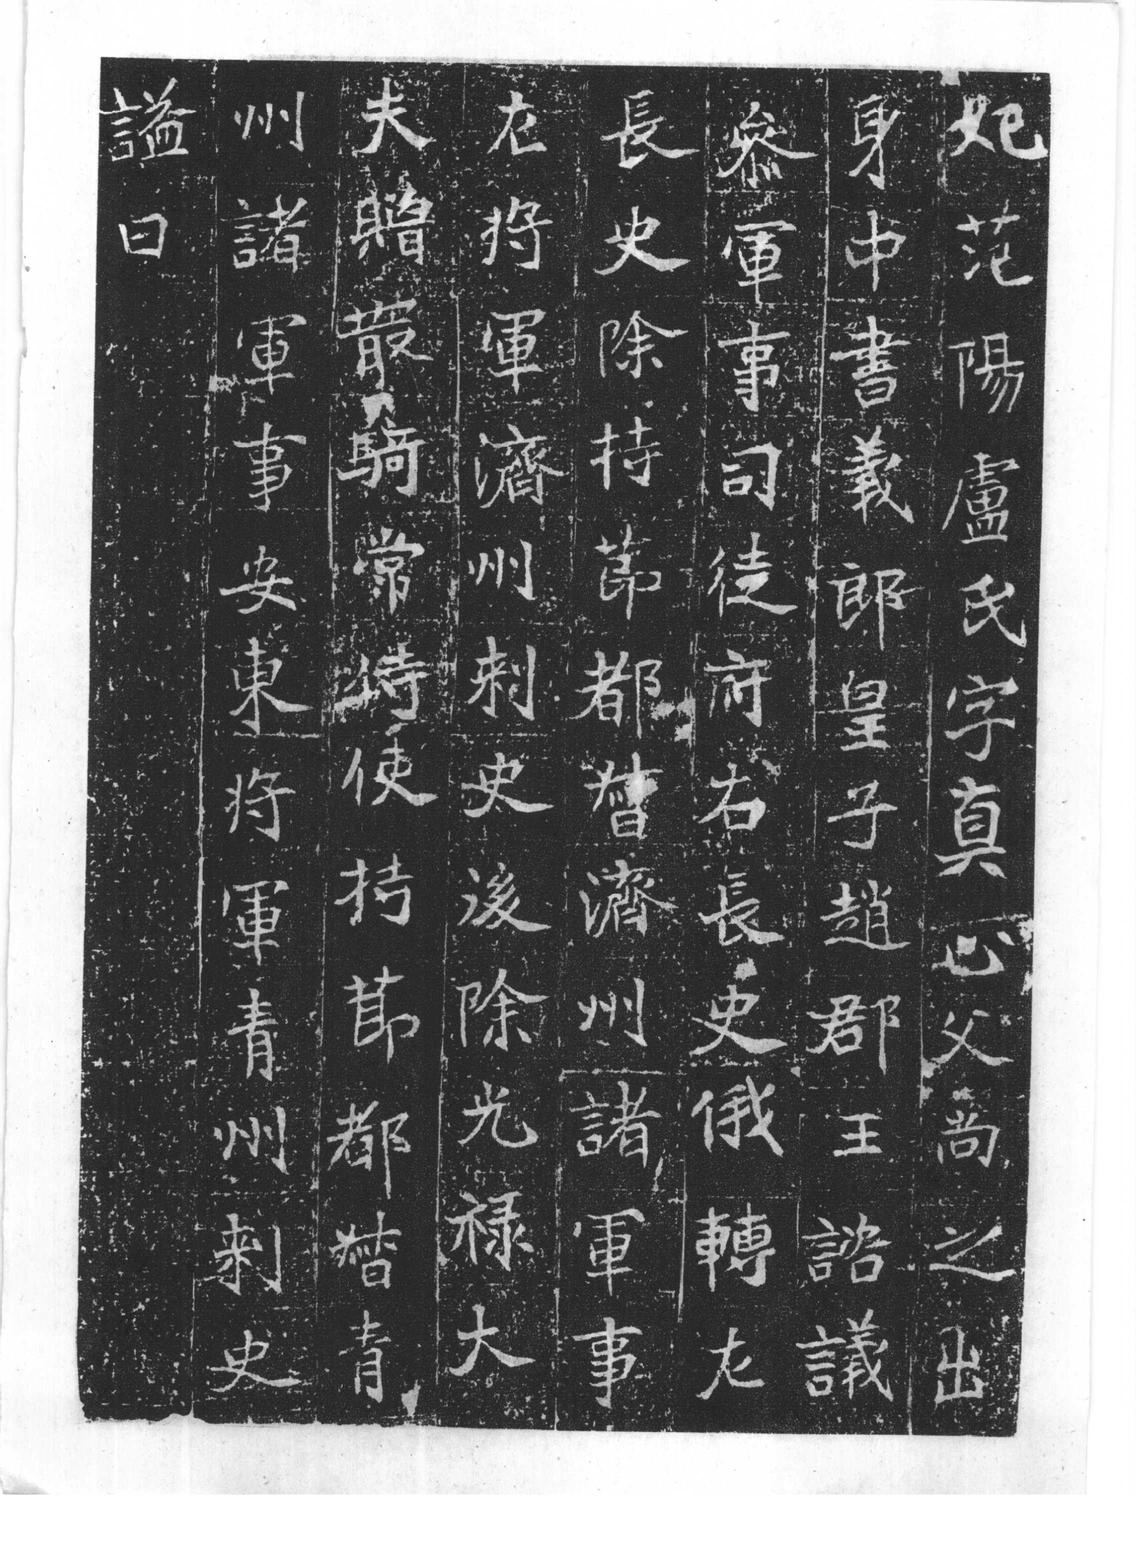 妃范陽盧氏字真心父尚之出
身中書義郎皇子趙郡王諮議
叅軍事司徒府右長史俄轉左
長史除持節都督濟州諸軍事
左将軍濟州刺史後除光禄大
夫贈散騎常侍使持節都督青
州諸軍事安東将軍青州刺史
諡曰